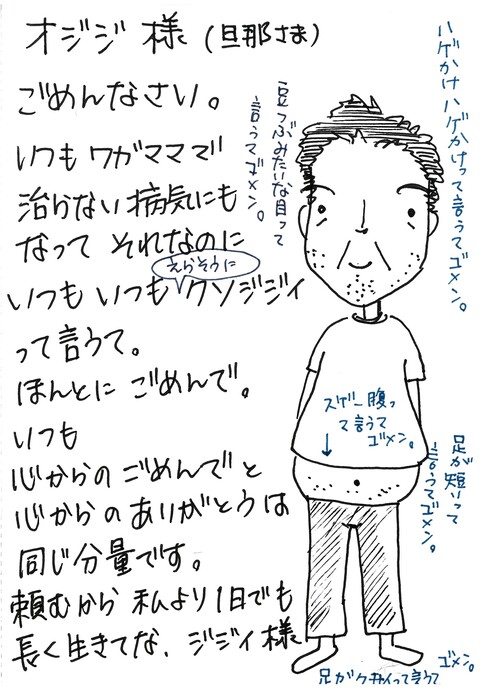 オジジ 様 (旦那さま)
ごめんなさい。
いつも ワガママで
治らない病気にも
なって それなのに
えらそうに
いつも いつも クソジジィ
って言うて。
ほんとに ごめんで。
いつも
心からの ごめんでと
心からの ありがとうは
同じ分量です。
頼むから 私より1日でも
長く生きてな、ジジィ様
豆つぶみたいな目って
言うてゴメン。
ハゲかけハゲかけって言うてゴメン。
スゲー腹っ
て言うて
ゴメン。
足が短いって
言うてゴメン。
足がクサイって言うて
ゴメン。